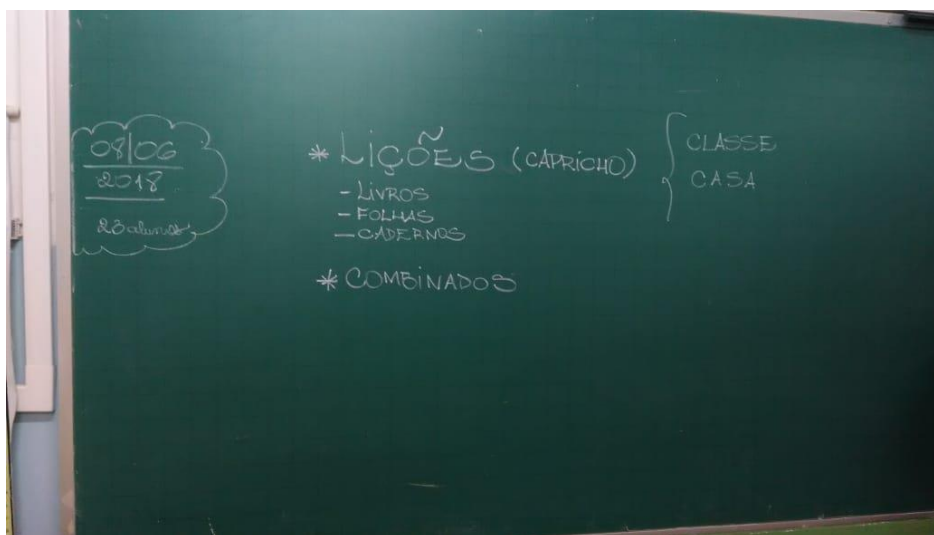 08/06
2018
23 alunos
* LIÇÕES (CAPRICHO) { CLASSE
CASA
- LIVROS
- FOLHAS
- CADERNOS
* COMBINADOS